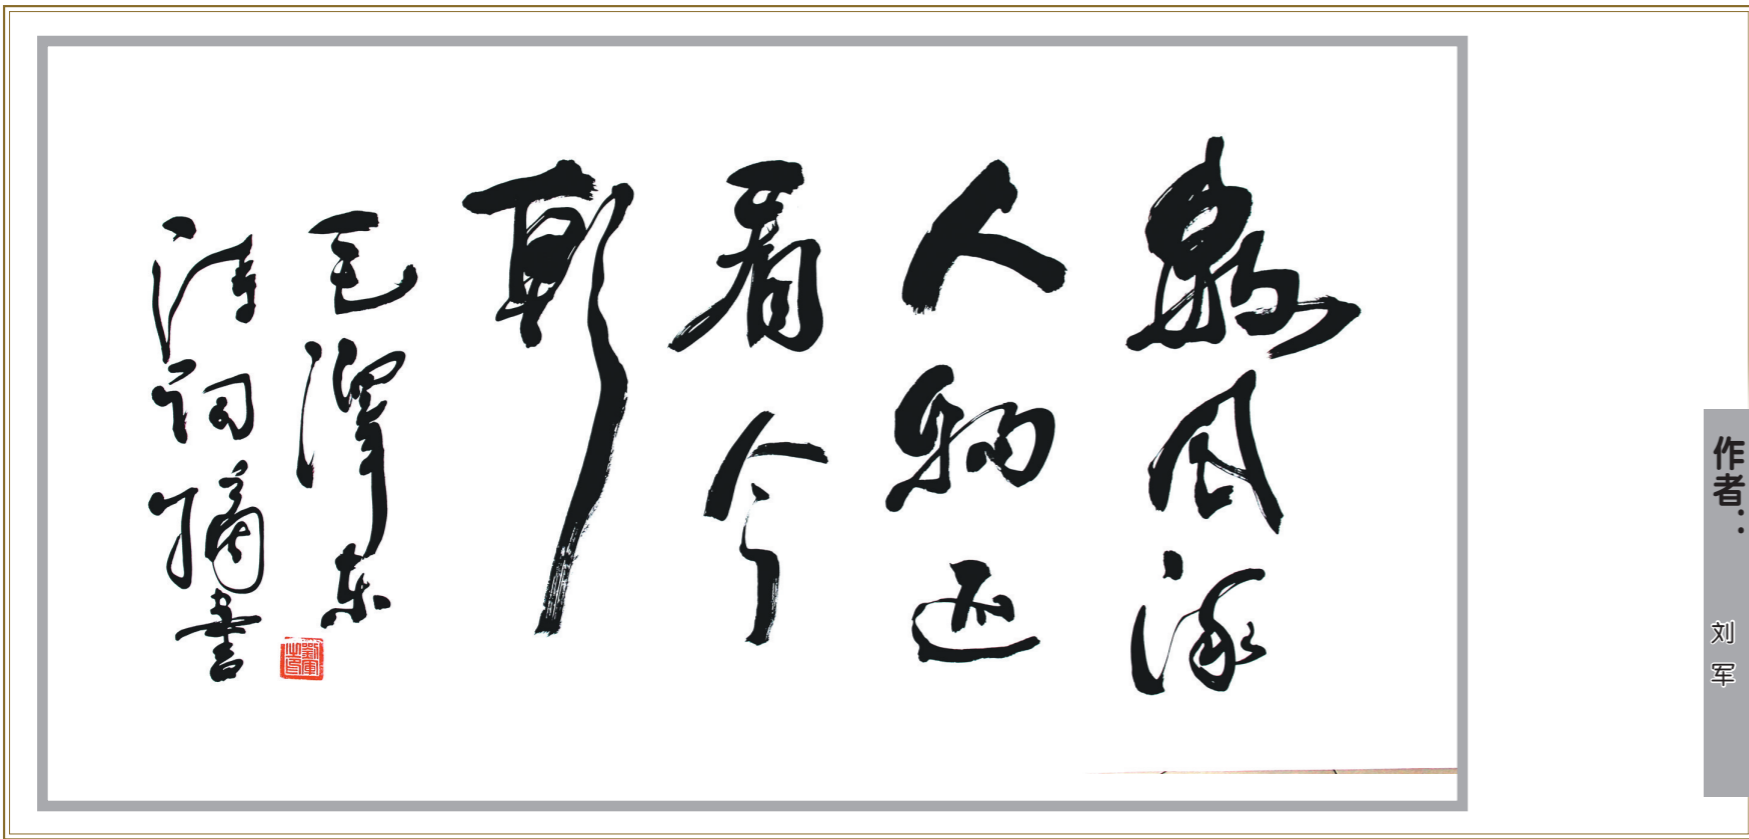 数风流
人物还
看今
朝
毛泽东
诗词摘书
刘军之印
作者：
刘军